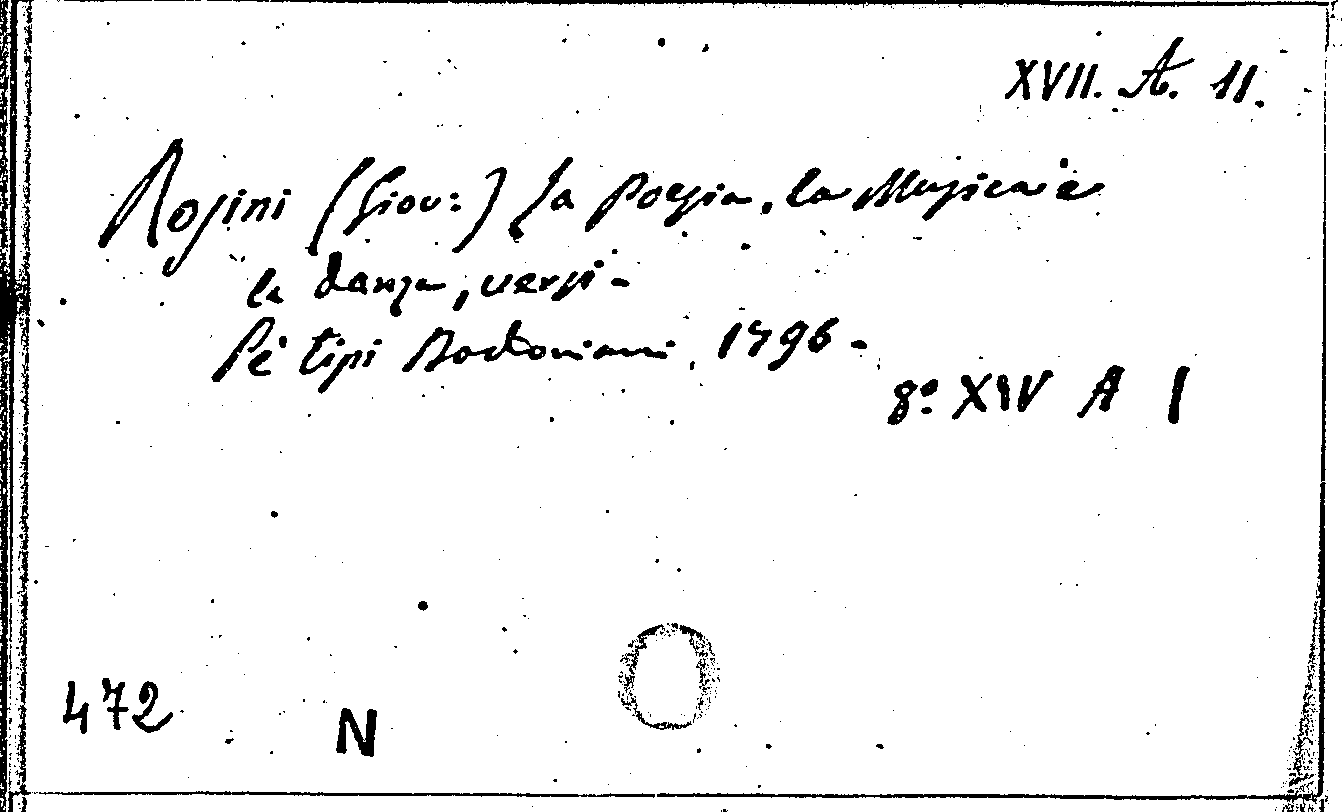 XVII. A. 11.
Rosini (Giov:) La Poesia, la Musica e
la danza, versi.
Pè tipi Bodoniani, 1796.
8º XIV A 1
472
N